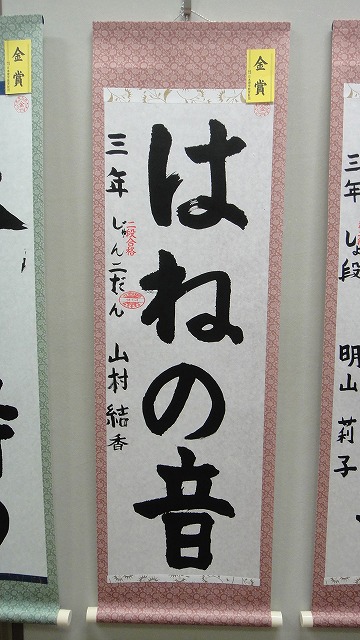 金賞
はねの音
三年 じゅん二だん 山村結香
二段合格
金賞
三年 しょ段 明山莉子
金賞